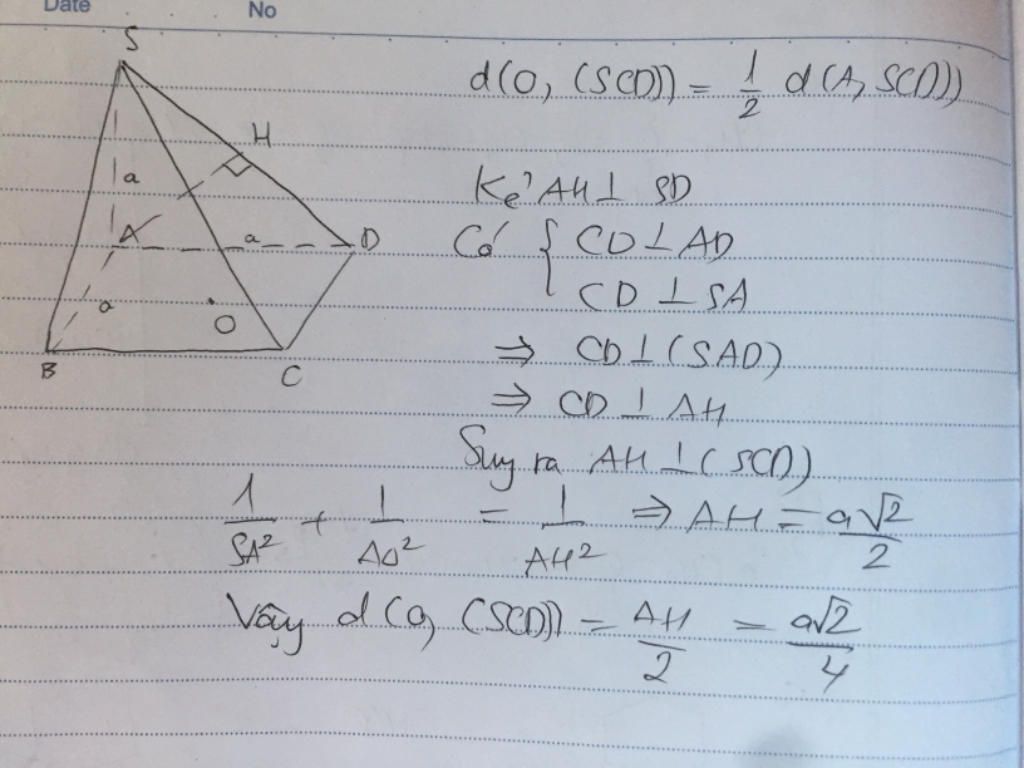 Date No
d(O, (SCD)) = 1/2 d(A, SCD)))
S
H
a
A a D
a
O
B C
Kẻ AH ⊥ SD
Có { CD ⊥ AD
CD ⊥ SA
⇒ CD ⊥ (SAD)
⇒ CD ⊥ AH
Suy ra AH ⊥ (SCD)
1/SA² + 1/AD² = 1/AH² ⇒ AH = a√2/2
Vậy d(O, (SCD)) = AH/2 = a√2/4